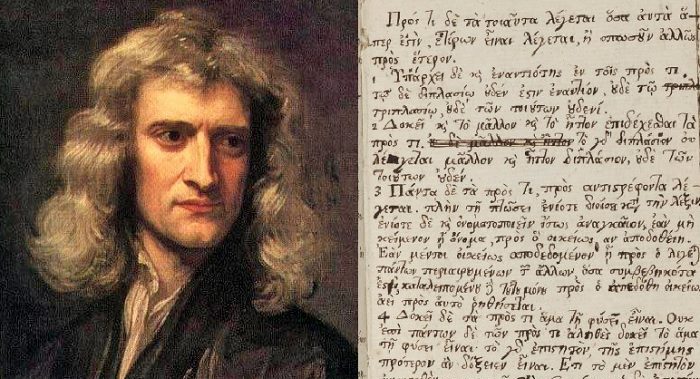 Πρός τι δὲ τὰ τοιαῦτα λέγεται ὅσα αὐτὰ ἅ
περ ἐστὶν, ἑτέρων εἶναι λέγεται, ἢ ὁπωσοῦν ἄλλως
πρὸς ἕτερον.
1 Ὑπάρχει δὲ ϗ ἐναντιότης ἐν τοῖς πρὸς τι
τῷ δὲ διπλασίῳ ὐδέν ἐστιν ἐναντίον, ὐδὲ τῷ
τριπλασίῳ, ὐδὲ τῶν τοιύτων ὐδενί.
2 Δοκεῖ ϗ τὸ μᾶλλον ϗ τὸ ἧττον ἐπιδέχεσθαι τὰ
πρὸς τι. τὸ διπλάσιον ὐ
λέγεται μᾶλλον ϗ ἧττον διπλάσιον, ὐδὲ τῶν
τοιύτων ὐδέν.
3 Πάντα δὲ τὰ πρὸς τι, πρὸς ἀντιστρέφοντα λέ
γεται. πλὴν τῇ πτώσει ἐνίοτε διοίσει τὴν λέξιν
ἐνίοτε δὲ ϗ ὀνοματοποιεῖν ἴσως ἀναγκαῖον, ἐὰν μὴ
κείμενον ᾖ ὄνομα, πρὸς ὃ οἰκείως ἂν ἀποδοθείη.
Ἐὰν μέντοι οἰκείως ἀποδεδομένον ᾖ πρὸς ὃ λέγε
πάντων περιαιρυμένων ἄλλων ὅσα συμβεβηκότα
ἐστι, καταλειπομένυ μόνυ πρὸς ὃ ἀπεδόθη οἰκείως
ἀεὶ πρὸς αὐτὸ ῥηθήσεται.
4 Δοκεῖ δὲ τὰ πρὸς τι ἅμα τῇ φύσει εἶναι. Οὐκ
ἐπὶ πάντων δὲ τῶν πρὸς τι ἀληθὲς δοκεῖ τὸ ἅμα
τῇ φύσει εἶναι. τὸ ἐπιστητὸν τῆς ἐπιστήμης
πρότερον ἂν δόξειεν εἶναι. Ἔτι τὸ μὲν ἐπιστητὸν